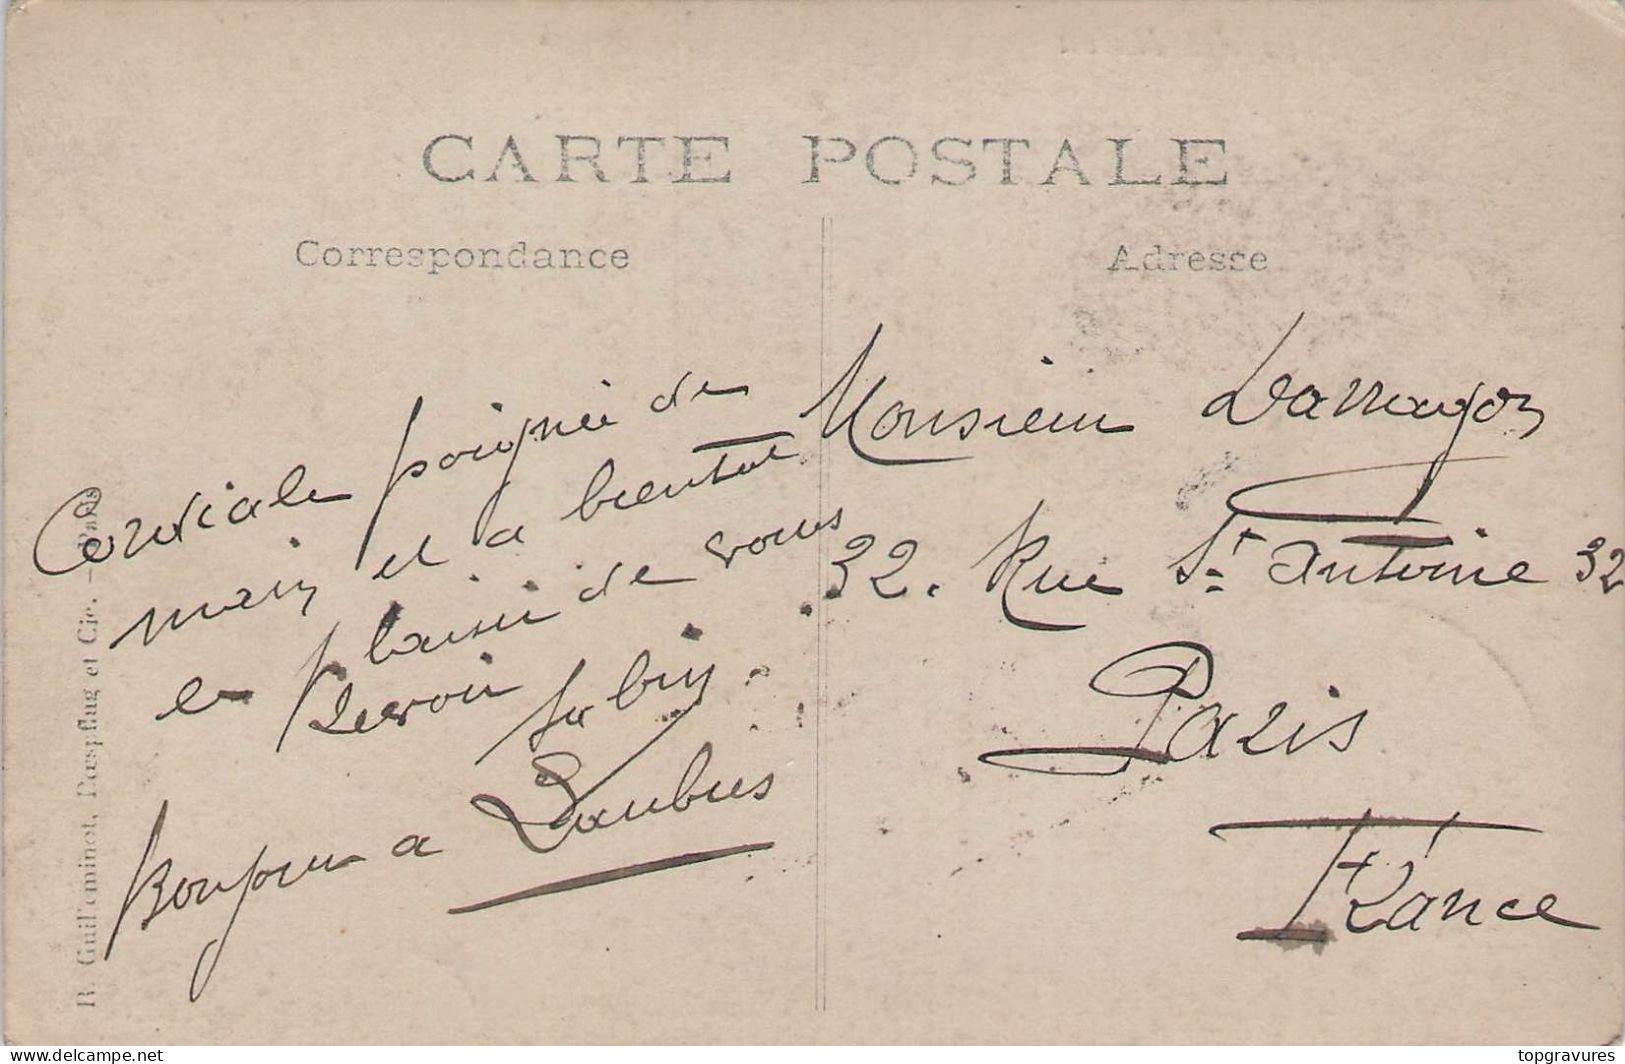 CARTE POSTALE
Correspondance
Cordiale poignée de
main et a bientot
le plaisir de vous
revoir
Bonjour a Daubus
Adresse
Monsieur Darragon
32. Rue St antoine 32
Paris
France
R. Guilleminot, Bœspflug et Cie. - Paris
delcampe.net
topgravures